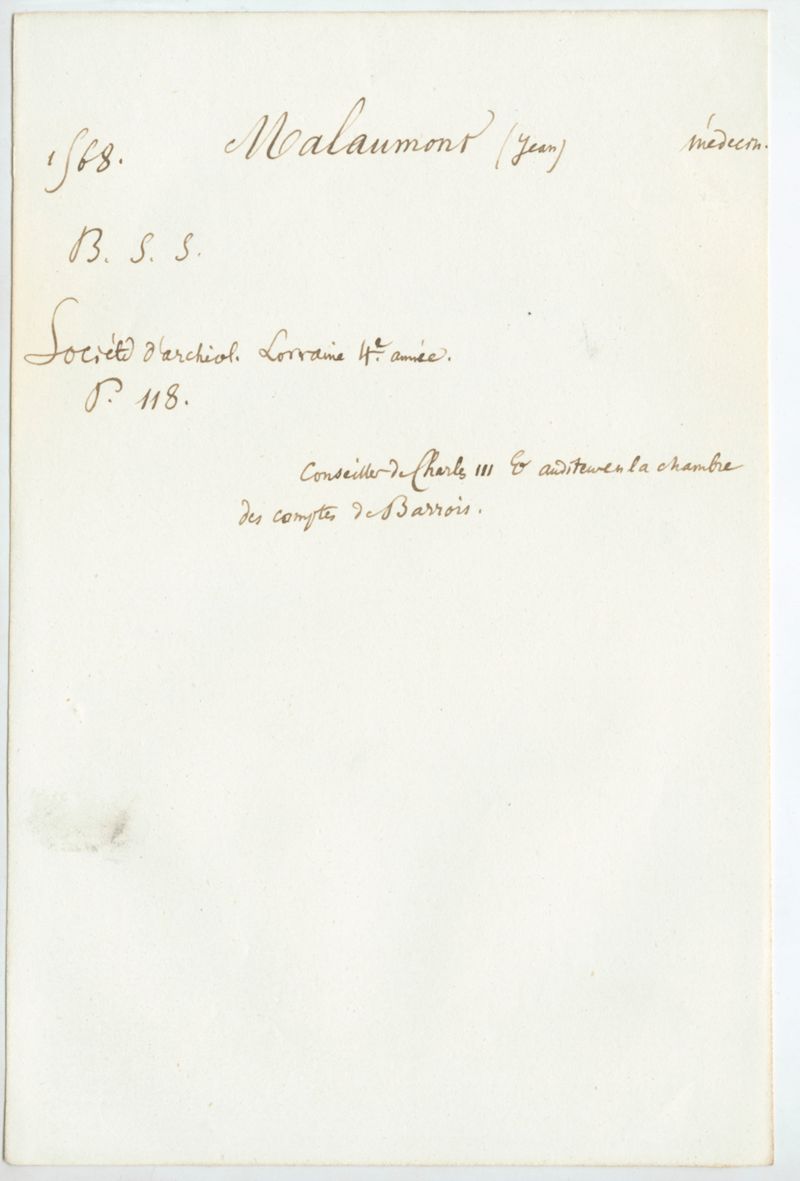 1568. Malaumont (Jean) médecin.
B. S. S.
Société d'archéol. Lorraine 4e. année.
P. 118.
Conseiller de Charles III & auditeur en la chambre
des comptes de Barrois.